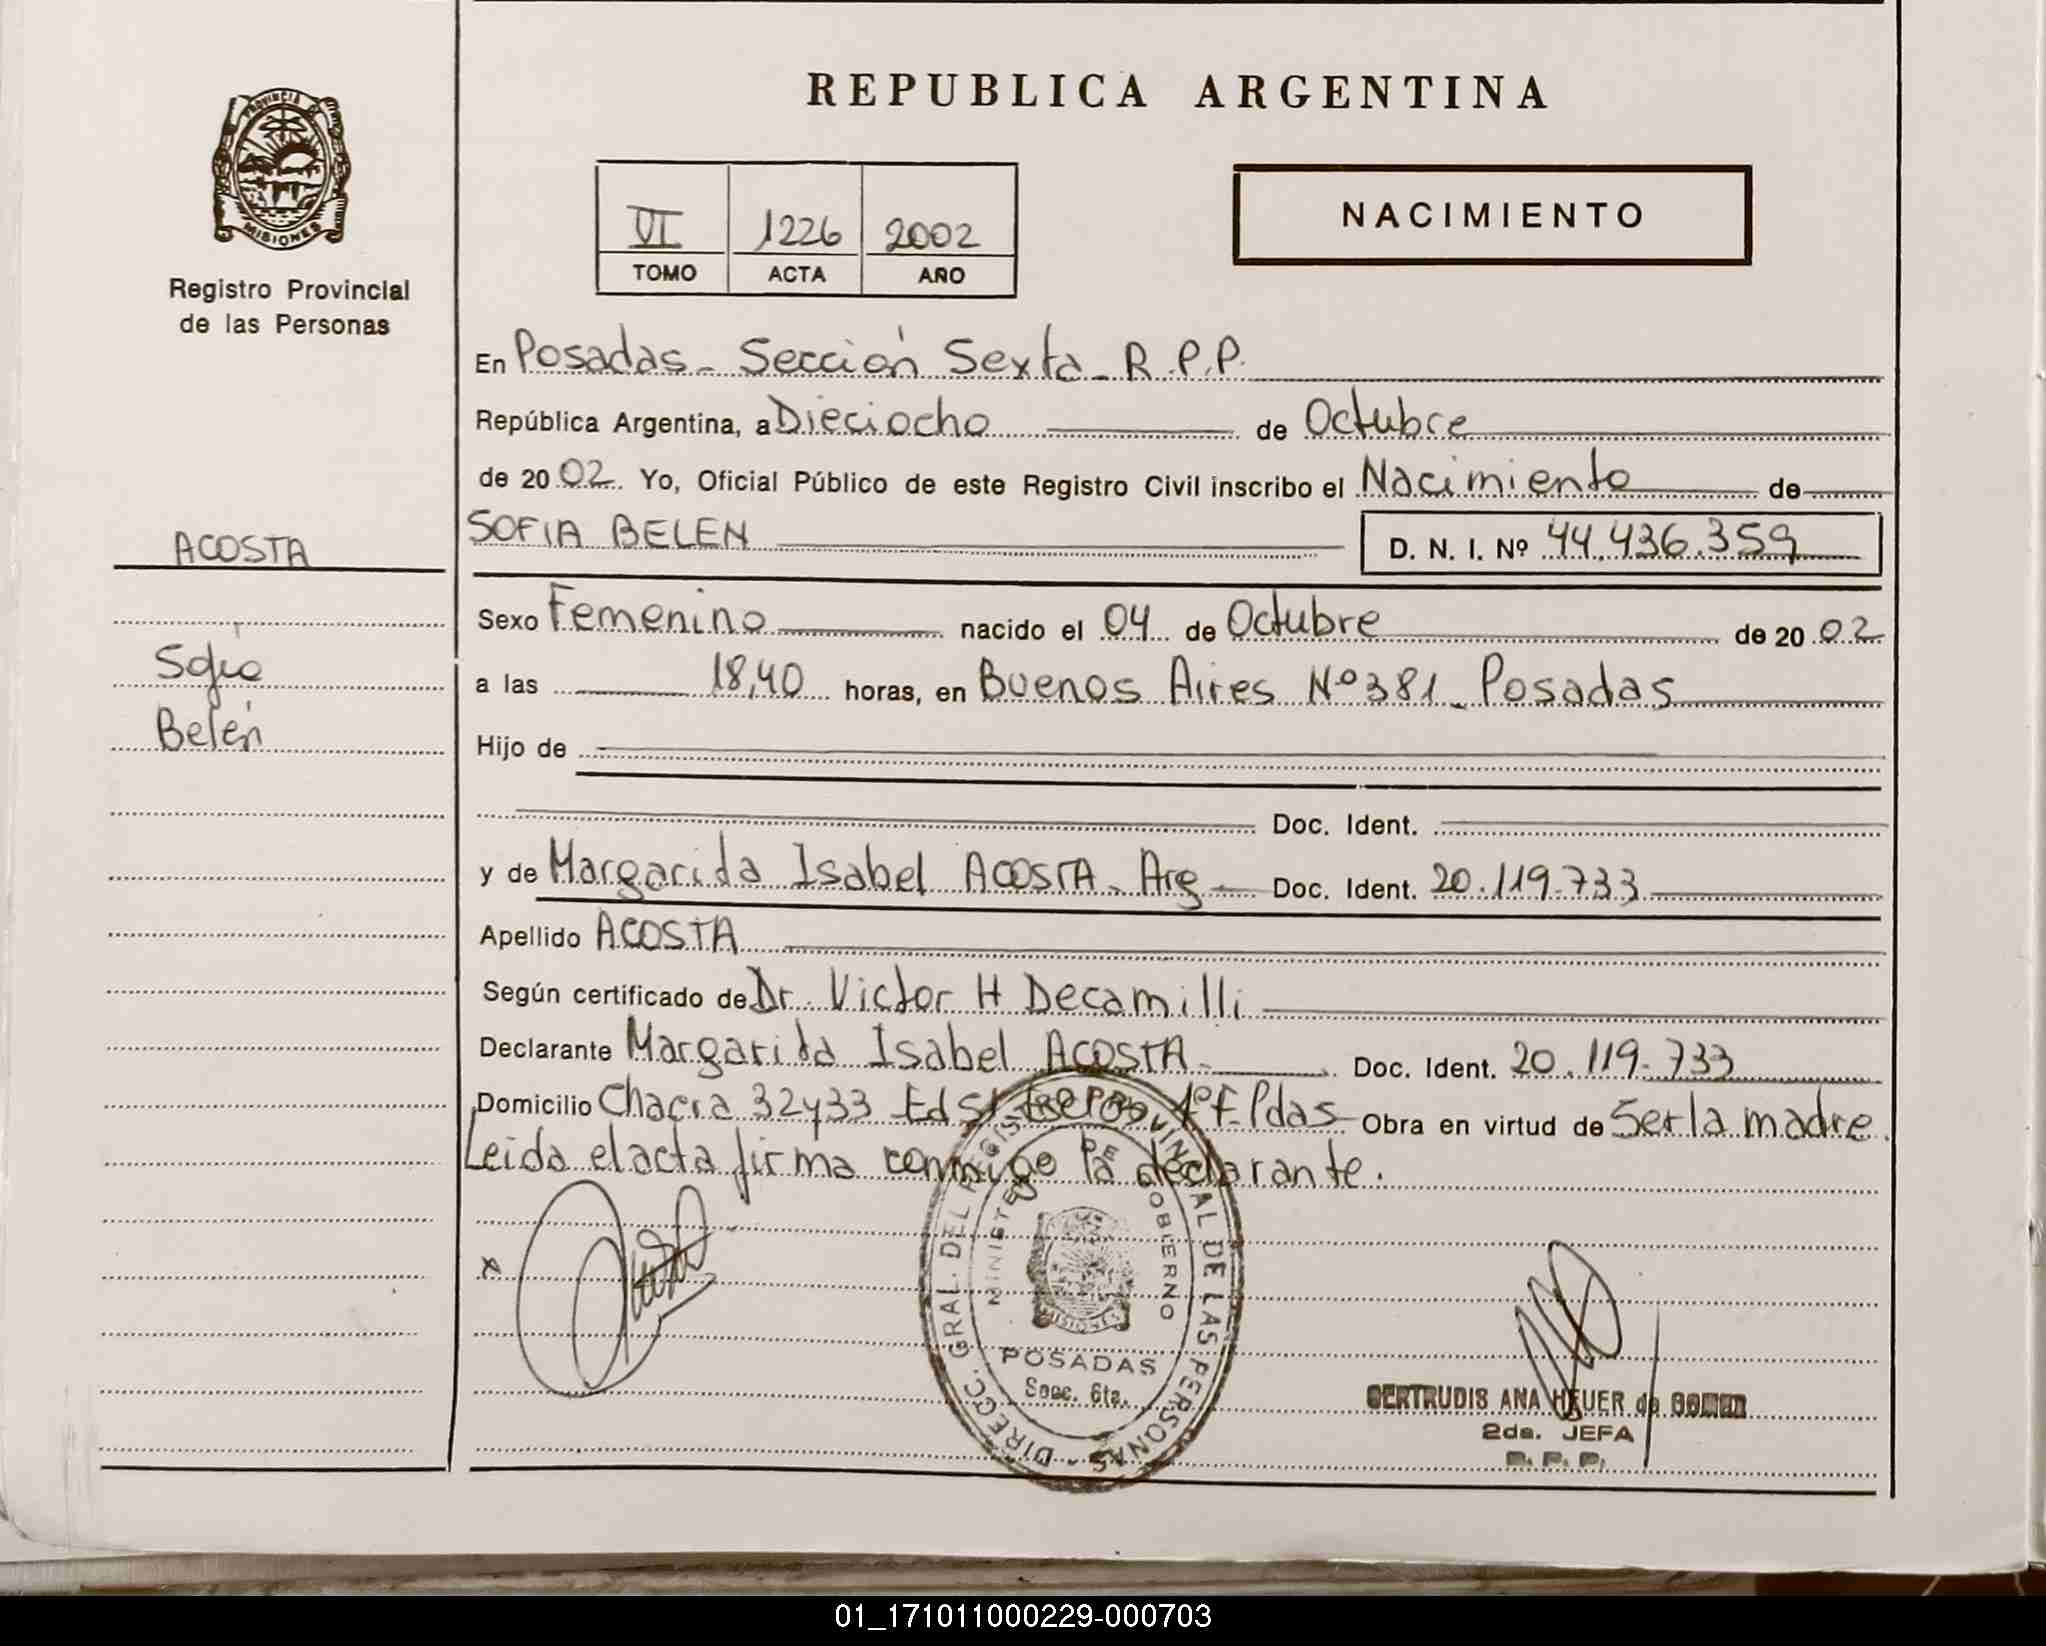 REPUBLICA ARGENTINA
PROVINCIA DE
MISIONES
Registro Provincial
de las Personas
VI 1226 2002
TOMO ACTA AÑO
NACIMIENTO
En Posadas - Sección Sexta - R.P.P.
República Argentina, a Dieciocho de Octubre
de 2002. Yo, Oficial Público de este Registro Civil inscribo el Nacimiento de
ACOSTA
Sofía
Belén
SOFIA BELEN D. N. I. Nº 44.436.359
Sexo Femenino nacido el 04 de Octubre de 2002
a las 18,40 horas, en Buenos Aires Nº 381 - Posadas
Hijo de
Doc. Ident.
y de Margarida Isabel ACOSTA - Arg Doc. Ident. 20.119.733
Apellido ACOSTA
Según certificado de Dr. Victor H Decamilli
Declarante Margarida Isabel ACOSTA - Doc. Ident. 20.119.733
Domicilio Chacra 32y33 Ed 1º F. Pdas Obra en virtud de Ser la madre.
Leida el acta firma conmigo la declarante.
x
DIRECC. GRAL. DEL REGISTRO PROVINCIAL DE LAS PERSONAS
MINISTERIO DE GOBIERNO
MISIONES
POSADAS
Secc. 6ta.
GERTRUDIS ANA HEUER de
2da. JEFA
R. P. P.
01_171011000229-000703